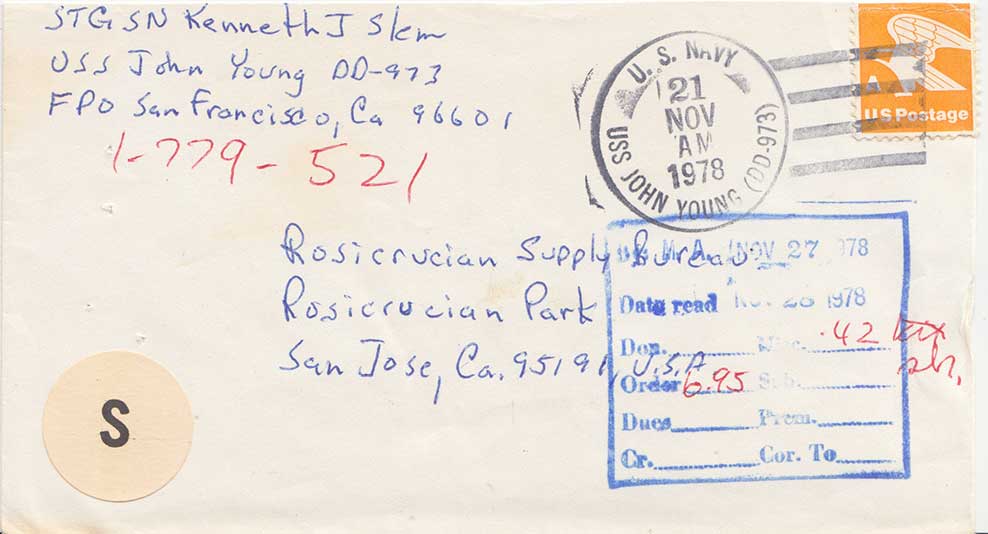 STGSN Kenneth J Skm
USS John Young DD-973
FPO San Francisco, Ca 96601
1-779-521
U.S. NAVY
21
NOV
AM
1978
USS JOHN YOUNG (DD-973)
US Postage
Rosicrucian Supply Bureau
Rosicrucian Park
San Jose, Ca. 95191, U.S.A
M.A. NOV 27 1978
Date read NOV 28 1978
Don. Misc. .42
Order 6.95 Sub.
Dues Prem.
Cr. Cor. To
S